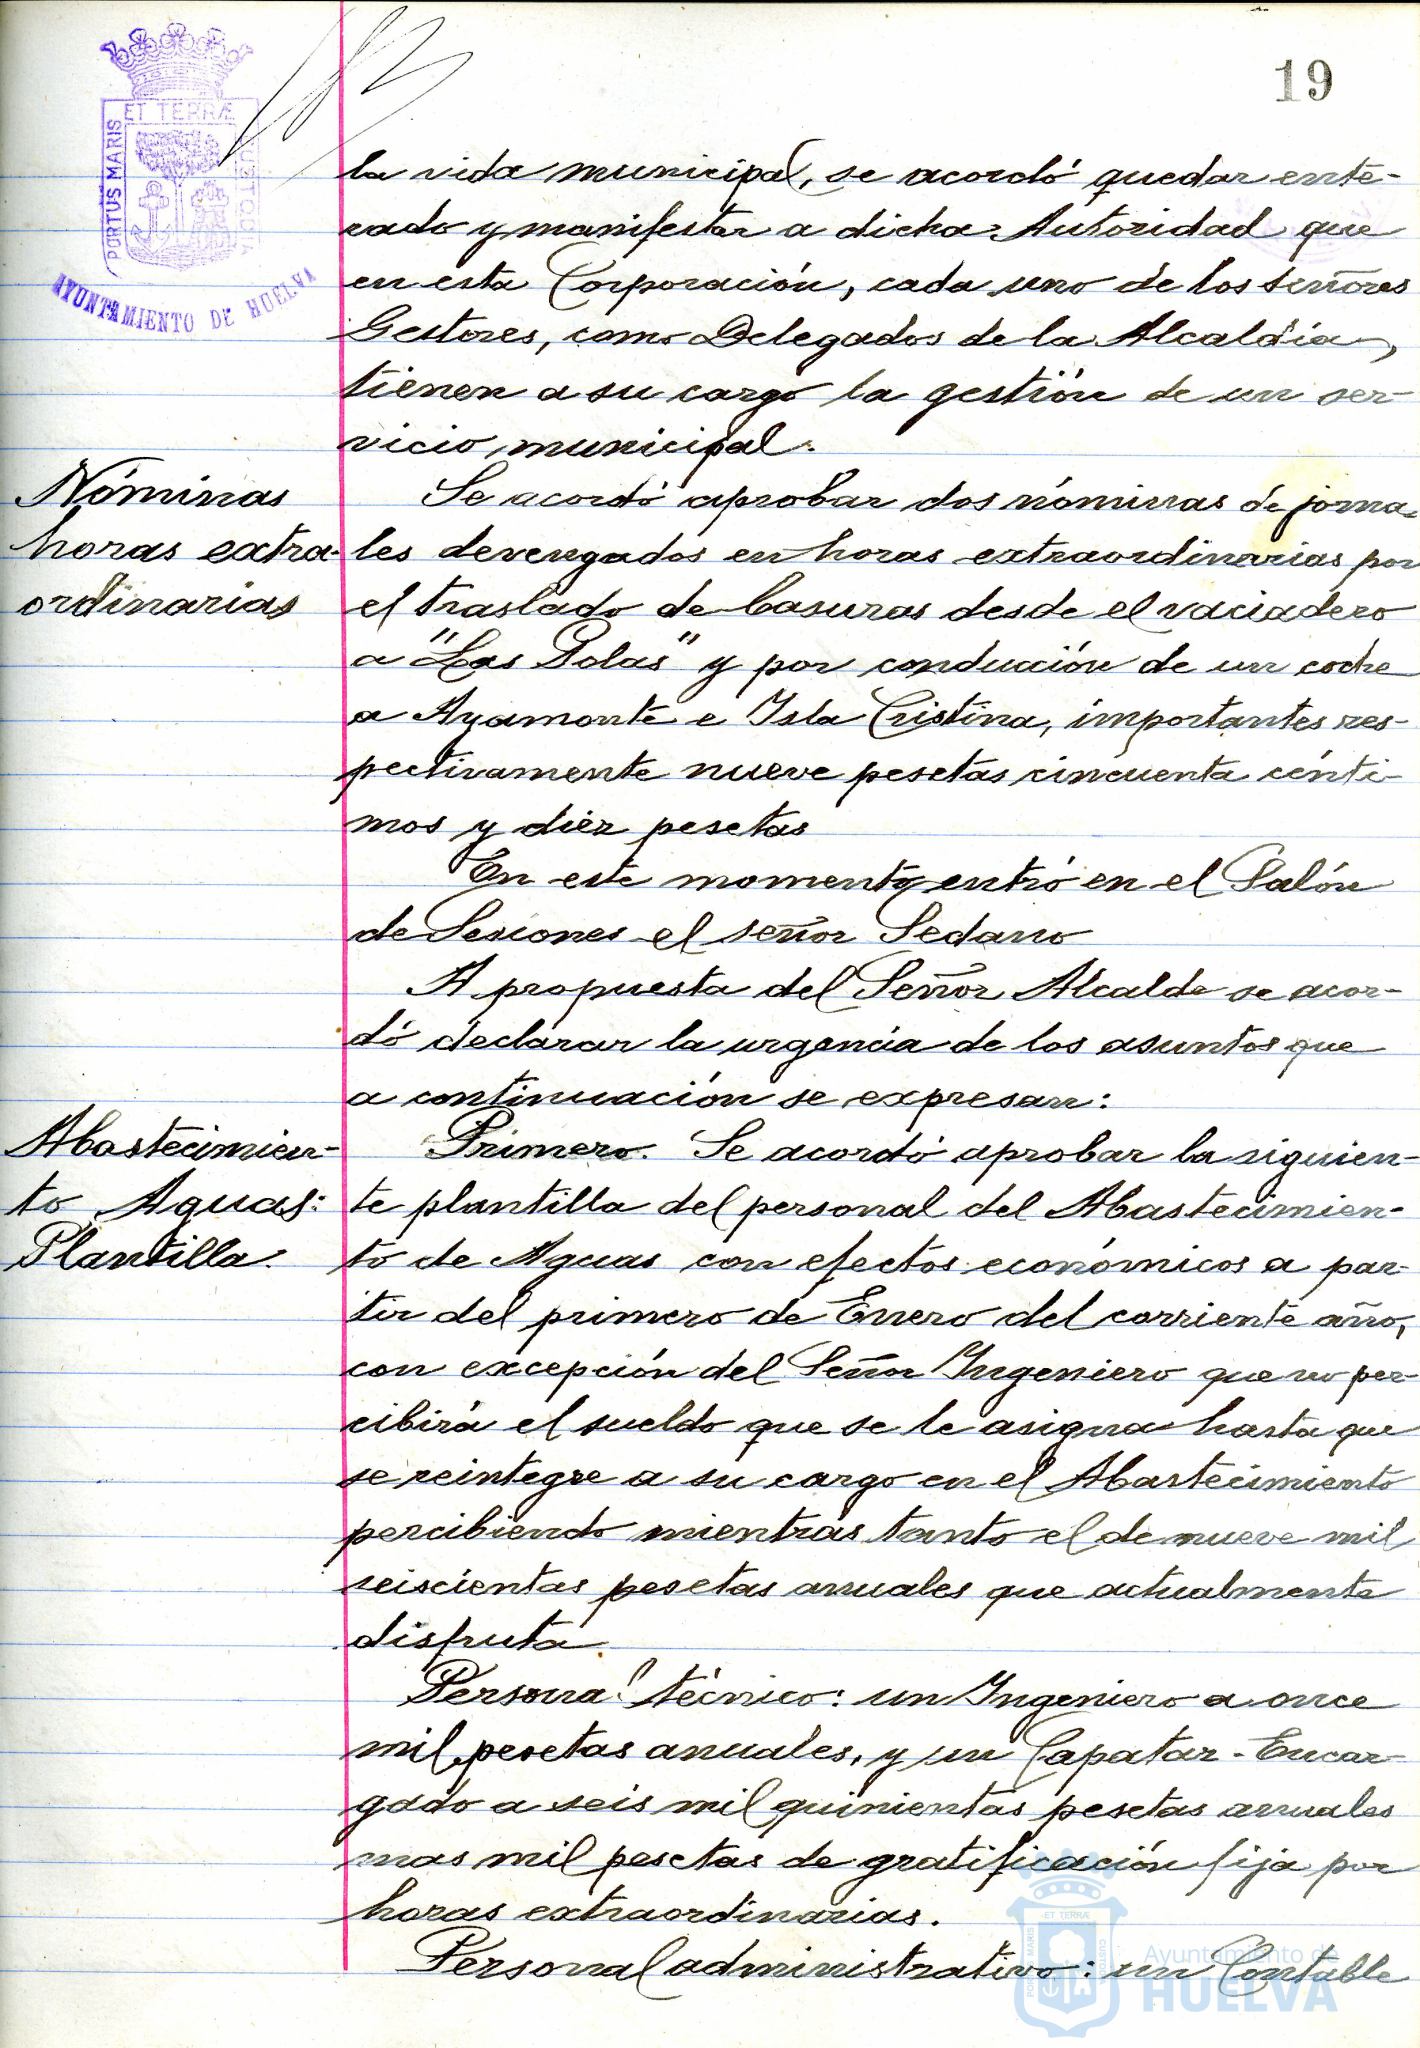 19
PORTUS MARIS
ET TERRÆ
CUSTODIA
AYUNTAMIENTO DE HUELVA
la vida municipal, se acordó quedar ente-
rado y manifestar a dicha Autoridad que
en esta Corporación, cada uno de los señores
Gestores, como Delegados de la Alcaldía,
tienen a su cargo la gestión de un ser-
vicio municipal.
Nóminas
horas extra-
ordinarias
Se acordó aprobar dos nóminas de jorna-
les devengados en horas extraordinarias por
el traslado de basuras desde el vaciadero
a "Las Tolas" y por conducción de un coche
a Ayamonte e Isla Cristina, importantes res-
pectivamente nueve pesetas cincuenta cénti-
mos y diez pesetas
En este momento entró en el Salón
de Sesiones el señor Sedano
A propuesta del Señor Alcalde se acor-
dó declarar la urgencia de los asuntos que
a continuación se expresan:
Abastecimien-
to Aguas:
Plantilla.
Primero. Se acordó aprobar la siguien-
te plantilla del personal del Abastecimien-
to de Aguas con efectos económicos a par-
tir del primero de Enero del corriente año,
con excepción del Señor Ingeniero que no per-
cibirá el sueldo que se le asigna hasta que
se reintegre a su cargo en el Abastecimiento
percibiendo mientras tanto el de nueve mil
seiscientas pesetas anuales que actualmente
disfruta.
Personal técnico: un Ingeniero a once
mil pesetas anuales, y un Capataz-Encar-
gado a seis mil quinientas pesetas anuales
mas mil pesetas de gratificación fija por
horas extraordinarias.
Personal administrativo: un Contable
PORTUS MARIS
ET TERRÆ
CUSTODIA
Ayuntamiento de
HUELVA